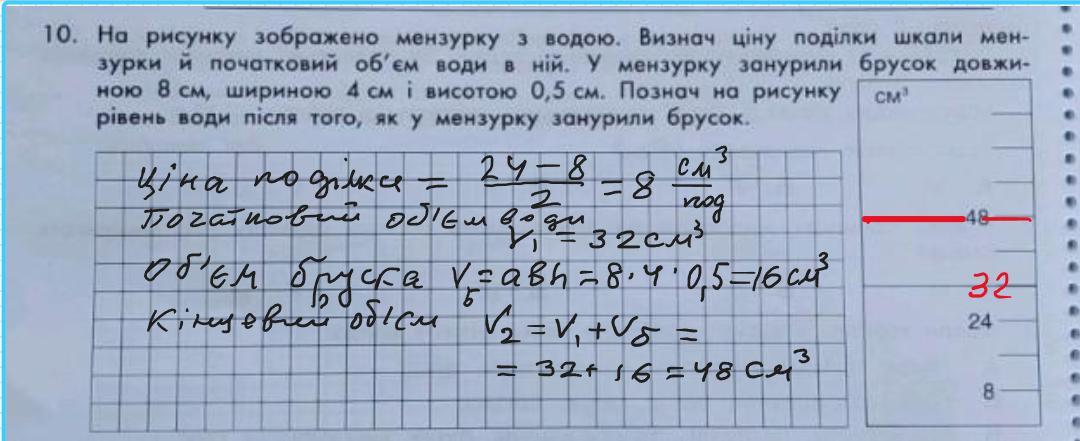 10. На рисунку зображено мензурку з водою. Визнач ціну поділки шкали мен-
зурки й початковий об'єм води в ній. У мензурку занурили брусок довжи-
ною 8 см, шириною 4 см і висотою 0,5 см. Познач на рисунку
рівень води після того, як у мензурку занурили брусок.
см³
Ціна поділки = (24 – 8)/2 = 8 см³/под
Початковий об'єм води
V₁ = 32 см³
Об'єм бруска Vб = abh = 8·4·0,5 = 16 см³
Кінцевий об'єм V₂ = V₁ + Vб =
= 32 + 16 = 48 см³
48
32
24
8